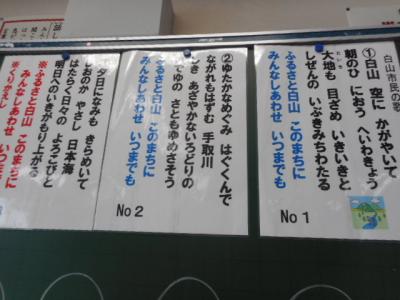 白山市民の歌
①白山 空に かがやいて
朝のひ におう へいわきょう
大地も 目ざめ いきいきと
しぜんの いぶきみちわたる
ふるさと白山 このまちに
みんなしあわせ いつまでも
No 1
②ゆたかなめぐみ はぐくんで
ながれもはずむ 手取川
しき あざやかないろどりの
でゆの さともゆめさそう
ふるさと白山 このまちに
みんなしあわせ いつまでも
No 2
夕日になみも きらめいて
しおのか やさし 日本海
はたらく日々の よろこびと
明日へのいきがもり上がる
※ふるさと白山 このまちに
みんなしあわせ いつまでも
※くりかえし